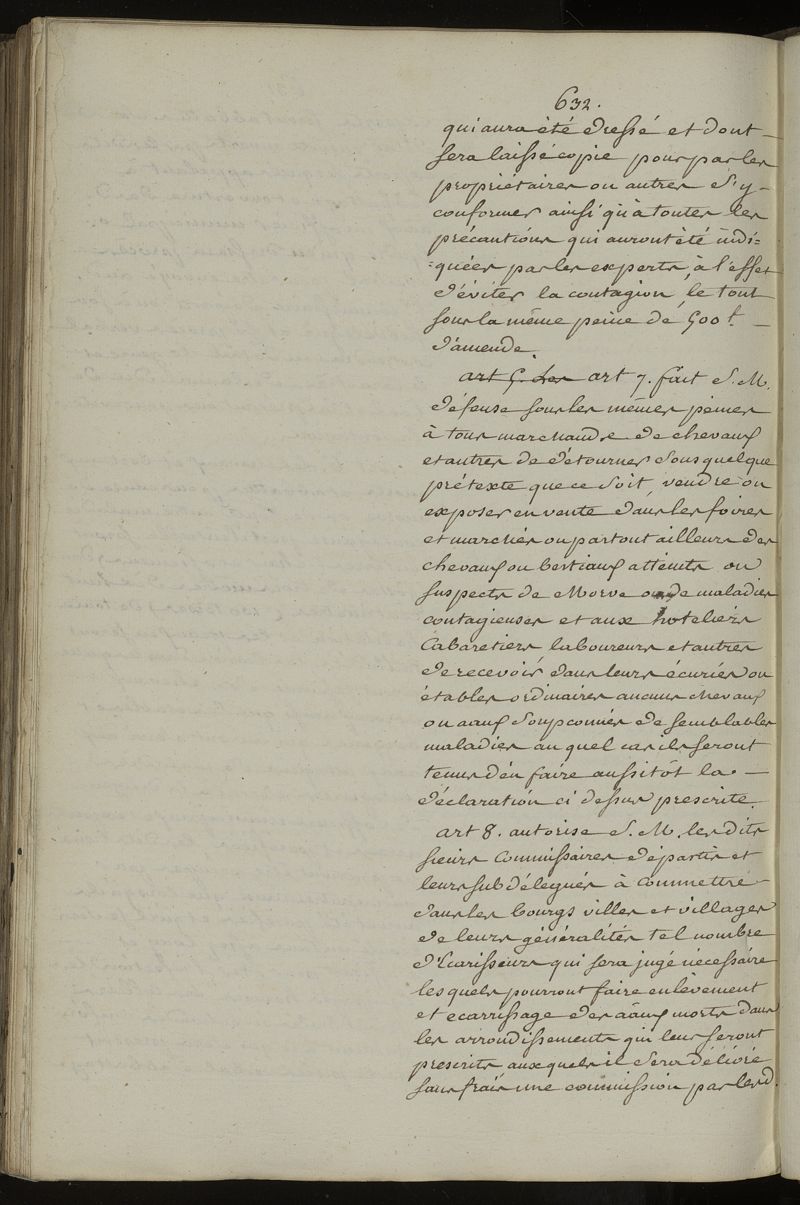 632.
qui aura été dressé et dont
sera laissé copie pour par les
propriétaires ou autres s'y
conformer ainsi qu'a toutes les
précautions qui auront été indi=
=quées par les experts, à l'effet
d'éviter la contagion, le tout
sous la même peine de 500 lt.
d'amende.
art 5. Les art 7. fait S. M.
défense sous les mêmes peines
à tous marchands de chevaux
et autres de détourner sous quelque
prétexte que ce soit, vendre ou
exposer en vente dans les foires
et marchés ou partout ailleurs des
chevaux ou bestiaux atteints ou
suspects de Morve ou de maladies
contagieuses et aux hoteliers
Cabaretiers laboureurs et autres
de recevoir dans leurs écuries ou
étables ordinaires aucuns chevaux
ou aaux soupçonnés de semblables
maladies au quel cas ils seront
tenus d'en faire aussitôt la
déclaration ci dessus prescrite.
art 8. autorise S. M. les dits
sieurs Commissaires départis et
leurs subdélégués à commettre
dans les bourgs villes et villages
de leurs généralités tel nombre
d'Ecarisseurs qui sera jugé nécessaire
les quels pourront faire enlèvement
et ecarrissage des aaux morts dans
les arrondissements qui leur seront
prescrits auxquels il sera délivré
sans frais une commission par lesd.